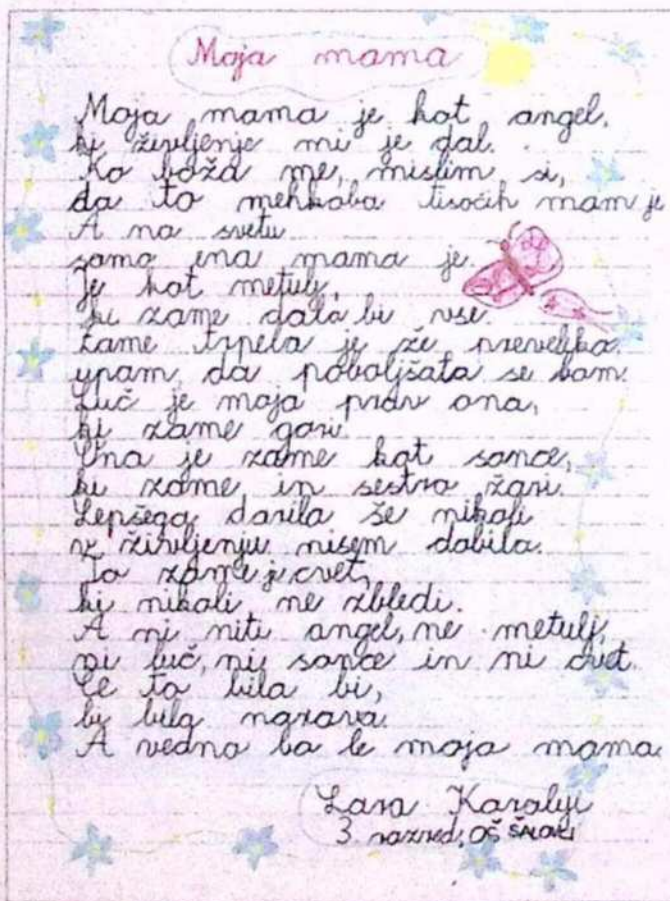 Moja mama
Moja mama je kot angel,
ki življenje mi je dal.
Ko boža me, mislim si,
da to mehkoba tisočih mam je
A na svetu
samo ena mama je.
Je kot metulj,
ki zame dala bi vse.
Zame trpela je že preveljko.
upam, da poboljšala se bom.
Luč je moja prav ona,
ki zame gori.
Ona je zame kot sonce,
ki zame in sestro žari.
Lepšega darila še nikoli
v življenju nisem dobila.
To zame je cvet,
ki nikoli ne zbledi.
A ni niti angel, ne metulj,
ni luč, ni sonce in ni cvet.
Če to bila bi,
bi bila narava.
A vedno bo le moja mama.
Lara Karolyi
3. razred, OŠ ŠALOVCI